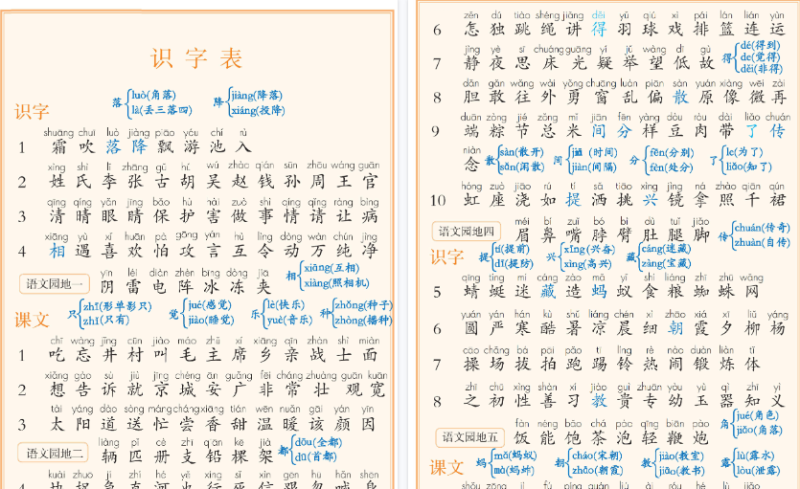 识字表
识字
落 luò(角落) là(丢三落四)
降 jiàng(降落) xiáng(投降)
shuāng chuī luò jiàng piāo yóu chí rù
1 霜 吹 落 降 飘 游 池 入
xìng shì lǐ zhāng gǔ hú wú zhào qián sūn zhōu wáng guān
2 姓 氏 李 张 古 胡 吴 赵 钱 孙 周 王 官
qīng qíng yǎn jīng bǎo hù hài zuò shì qíng qǐng ràng bìng
3 清 晴 眼 睛 保 护 害 做 事 情 请 让 病
xiāng yù xǐ huān pà gōng yán hù lìng dòng wàn chún jìng
4 相 遇 喜 欢 怕 攻 言 互 令 动 万 纯 净
语文园地一
yīn léi diàn zhèn bīng dòng jiā
阴 雷 电 阵 冰 冻 夹
相 xiāng(互相) xiàng(照相机)
课文
只 zhī(形单影只) zhǐ(只有)
觉 jué(感觉) jiào(睡觉)
乐 lè(快乐) yuè(音乐)
种 zhǒng(种子) zhòng(播种)
chī wàng jǐng cūn jiào máo zhǔ xí xiāng qīn zhàn shì miàn
1 吃 忘 井 村 叫 毛 主 席 乡 亲 战 士 面
xiǎng gào sù jiù jīng chéng ān guǎng fēi cháng zhuàng guān kuān
2 想 告 诉 就 京 城 安 广 非 常 壮 观 宽
tài yáng dào sòng máng cháng xiāng tián wēn nuǎn gāi yán yīn
3 太 阳 道 送 忙 尝 香 甜 温 暖 该 颜 因
语文园地二
liàng pǐ cè zhī qiān kē jià
辆 匹 册 支 铅 棵 架
都 dōu(全都) dū(首都)
4
zěn dú tiào shéng jiǎng děi yǔ qiú xì pái lán lián yùn
6 怎 独 跳 绳 讲 得 羽 球 戏 排 篮 连 运
jìng yè sī chuáng guāng yí jǔ wàng dī gù
7 静 夜 思 床 光 疑 举 望 低 故
得 dé(得到) de(觉得) děi(非得)
dǎn gǎn wǎng wài yǒng chuāng luàn piān sàn yuán xiàng wēi zài
8 胆 敢 往 外 勇 窗 乱 偏 散 原 像 微 再
duān zòng jié zǒng mǐ jiān fēn yàng dòu ròu dài liǎo chuán
9 端 粽 节 总 米 间 分 样 豆 肉 带 了 传
niàn
念
散 sàn(散开) sǎn(闲散)
间 jiān(时间) jiàn(间隔)
分 fēn(分别) fèn(处分)
了 le(为了) liǎo(知了)
hóng zuò jiāo rú tí sǎ tiāo xìng jìng ná zhào qiān qún
10 虹 座 浇 如 提 洒 挑 兴 镜 拿 照 千 裙
语文园地四
méi bí zuǐ bó bì dù tuǐ jiǎo
眉 鼻 嘴 脖 臂 肚 腿 脚
传 chuán(传奇) zhuàn(自传)
识字
提 tí(提前) dī(提防)
兴 xīng(兴奋) xìng(高兴)
藏 cáng(迷藏) zàng(宝藏)
qīng tíng mí cáng zào mǎ yǐ shí liáng zhī zhū wǎng
5 蜻 蜓 迷 藏 造 蚂 蚁 食 粮 蜘 蛛 网
yuán yán hán kù shǔ liáng chén xì zhāo xiá xī liǔ yáng
6 圆 严 寒 酷 暑 凉 晨 细 朝 霞 夕 柳 杨
cāo chǎng bá pāi pǎo tī líng rè nào duàn liàn tǐ
7 操 场 拔 拍 跑 踢 铃 热 闹 锻 炼 体
zhī chū xìng shàn xí jiào guì zhuān yòu yù qì zhī yì
8 之 初 性 善 习 教 贵 专 幼 玉 器 知 义
语文园地五
fàn néng bǎo chá pào qīng biān pào
饭 能 饱 茶 泡 轻 鞭 炮
角 jué(角色) jiǎo(角落)
课文
蚂 mǎ(蚂蚁) mà(蚂蚱)
朝 cháo(宋朝) zhāo(朝霞)
教 jiào(教室) jiāo(教书)
露 lù(露水) lòu(泄露)